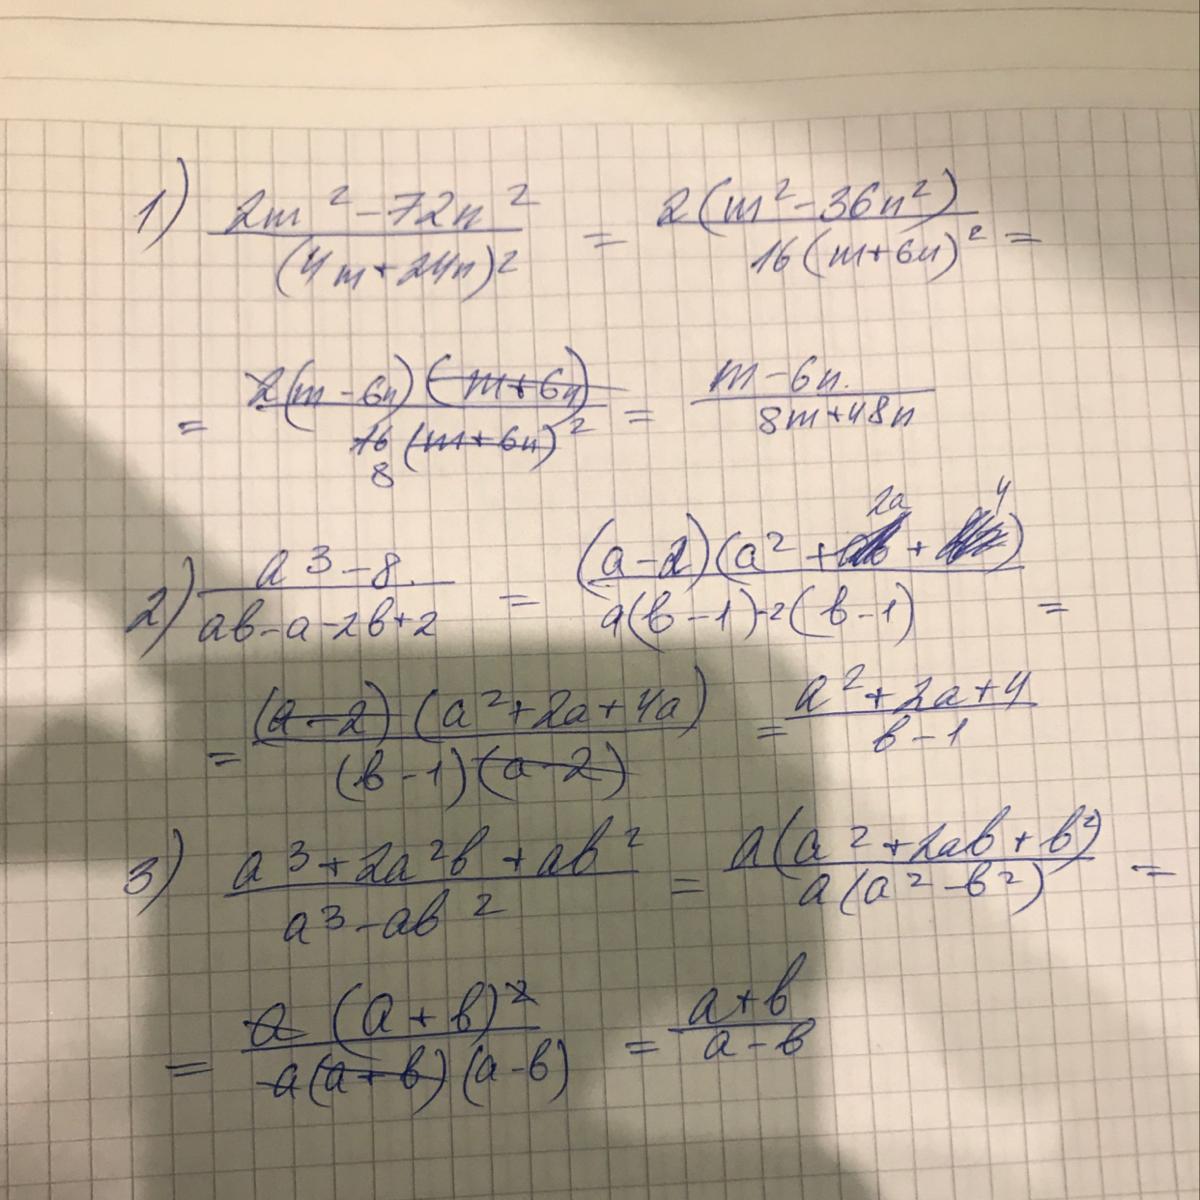 1) (2m² - 72n²)/(4m + 24n)² = 2(m² - 36n²)/16(m + 6n)² =
= 2(m - 6n)(m + 6n)/16(m + 6n)² = (m - 6n)/(8m + 48n)
8
2a 4
2) (a³ - 8)/(ab - a - 2b + 2) = (a - 2)(a² + 2a + 4)/a(b - 1) - 2(b - 1) =
= (a - 2)(a² + 2a + 4a)/(b - 1)(a - 2) = (a² + 2a + 4)/(b - 1)
3) (a³ + 2a²b + ab²)/(a³ - ab²) = a(a² + 2ab + b²)/a(a² - b²) =
= a(a + b)²/a(a + b)(a - b) = (a + b)/(a - b)